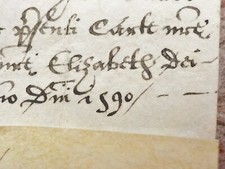 p'senti Carte mee
Elizabeth Dei
Dni 1590